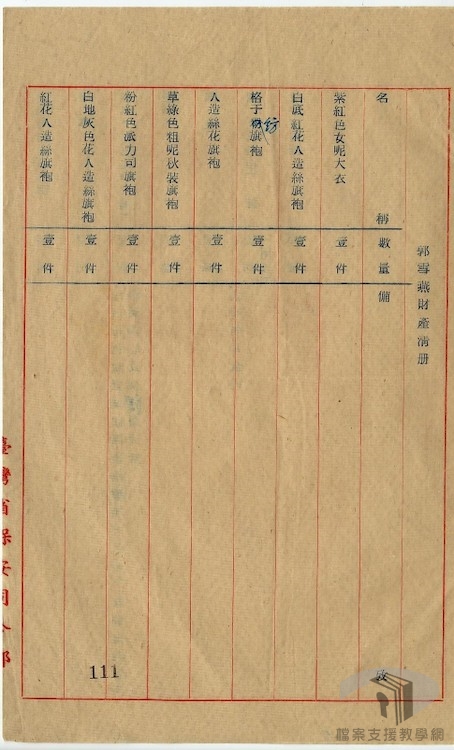 郭雪燕財產清册
名稱 數量 備攷
紫紅色女呢大衣 壹件
白底紅花人造絲旗袍 壹件
格子紡旗袍 壹件
人造絲花旗袍 壹件
草綠色粗呢秋裝旗袍 壹件
粉紅色派力司旗袍 壹件
白地灰色花人造絲旗袍 壹件
紅花人造絲旗袍 壹件
臺灣省保安司令部
111
檔案支援教學網